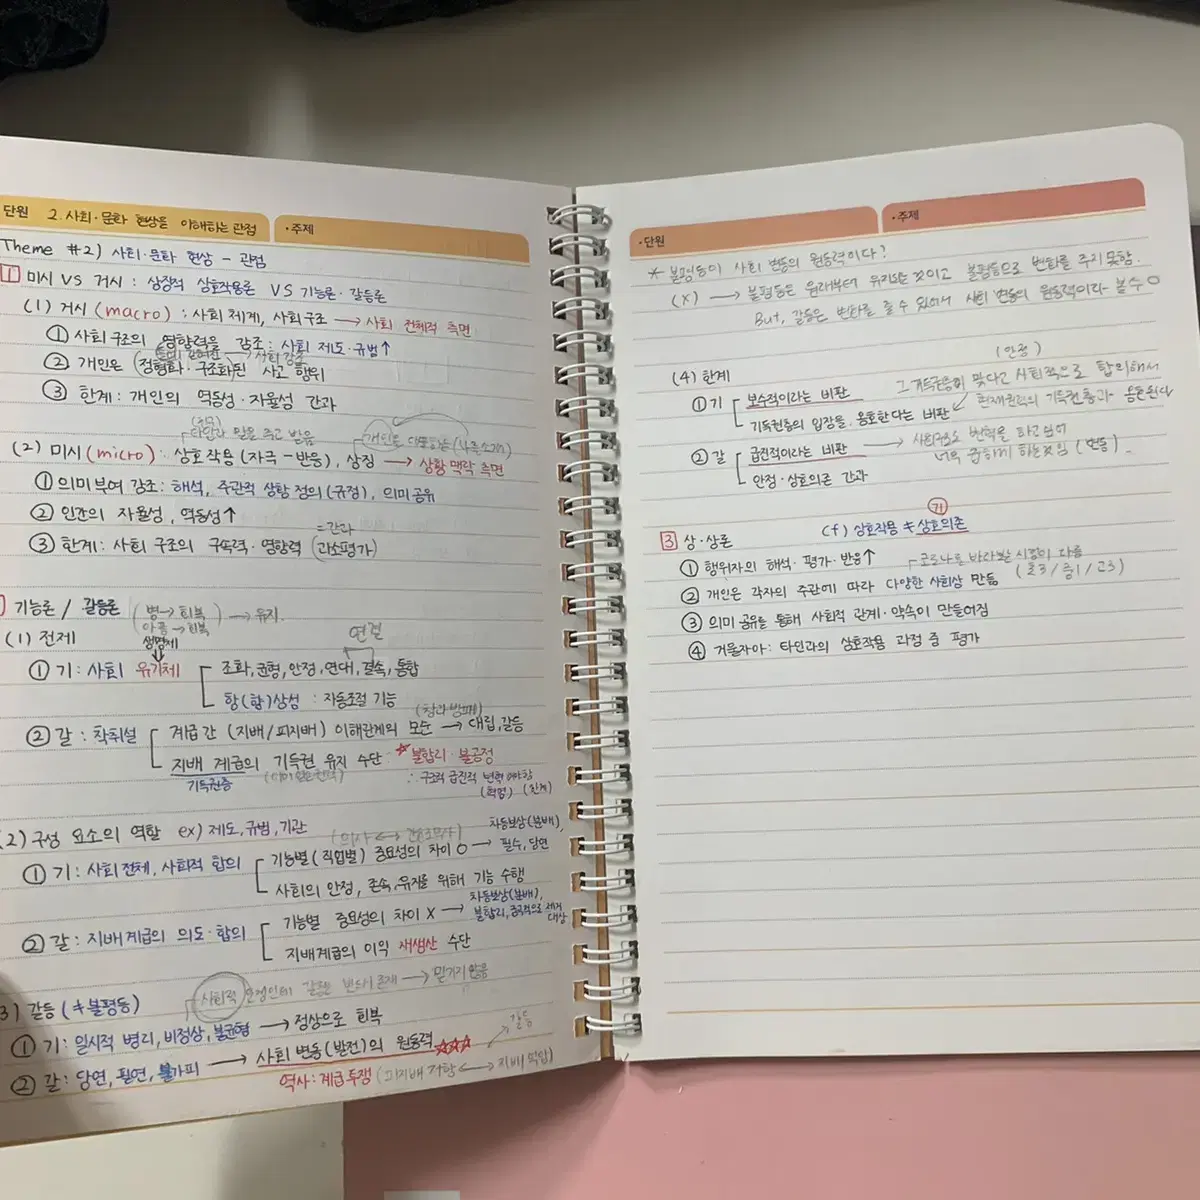 단원 2. 사회·문화 현상을 이해하는 관점 ·주제
Theme #2) 사회·문화 현상 - 관점
1 미시 VS 거시 : 상징적 상호작용론 VS 기능론·갈등론
(1) 거시(macro) : 사회 체계, 사회구조 → 사회 전체적 측면
① 사회 구조의 영향력을 강조 : 사회 제도·규범↑
사회 강조
② 개인은 (정형화·구조화)된 사고 행위
③ 한계 : 개인의 역동성·자율성 간과
타인과 일을 주고 받음
(2) 미시(micro) : 상호작용(자극-반응), 상징 → 상황 맥락 측면
① 의미부여 강조 : 해석, 주관적 상황 정의(규정), 의미 공유
② 인간의 자율성, 역동성↑
=간과
③ 한계 : 사회 구조의 구속력·영향력 (과소평가)
기능론 / 갈등론 (병→회복 → 유지.
아픔→회복)
(1) 전제
생명체
연결
① 기 : 사회 유기체 조화, 균형, 안정, 연대, 결속, 통합
항(항)상성 : 자동조절 기능
② 갈 : 착취설 계급간 (지배/피지배) 이해관계의 모순 → 대립, 갈등
지배 계급의 기득권 유지 수단 : ★불합리·불공정
기득권층
∴ 구조적 급진적 변혁
(혁명) (한계)
(2) 구성 요소의 역할 ex) 제도, 규범, 기관 (의사 ↔ 간호조무사)
차등보상(분배),
① 기 : 사회 전체, 사회적 합의 기능별(직업별) 중요성의 차이 O → 필수, 당연
사회의 안정, 존속, 유지를 위해 기능 수행
차등보상(분배),
② 갈 : 지배계급의 의도·합의 기능별 중요성의 차이 X → 불합리, 궁극적으로 제거 대상
지배계급의 이익 재생산 수단
사회적 안정인데 갈등은 반드시 존재 → 믿기지 않음
3) 갈등 (≠불평등)
① 기 : 일시적 병리, 비정상, 불균형 → 정상으로 회복
갈등
② 갈 : 당연, 필연, 불가피 → 사회 변동(발전)의 원동력 ☆☆☆
역사 : 계급 투쟁 (피지배 저항 ↔ 지배 억압)
·단원 ·주제
* 불평등이 사회 변동의 원동력이다?
(X) → 불평등은 원래부터 유지되는 것이고 불평등으로 변화를 주지 못함.
But, 갈등은 변화를 줄 수 있어서 사회 변동의 원동력이라 볼 수 O
(4) 한계
(안정)
① 기 보수적이라는 비판 그 기득권층이 맞다고 사회적으로 합의해서
기득권층의 입장을 옹호한다는 비판 현재권력의 기득권층과 옹호된다
② 갈 급진적이라는 비판 → 사회구조 변혁을 하고 있어
너무 급하게 하는 것임 (변동).
안정·상호의존 간과
기
3 상·상론 (f) 상호작용 ≠ 상호의존
① 행위자의 해석·평가·반응↑ 코로나를 바라보는 시점이 다름
② 개인은 각자의 주관에 따라 다양한 사회상 만듦 (초3/중1/고3)
③ 의미 공유를 통해 사회적 관계·약속이 만들어짐
④ 거울자아 : 타인과의 상호작용 과정 중 평가